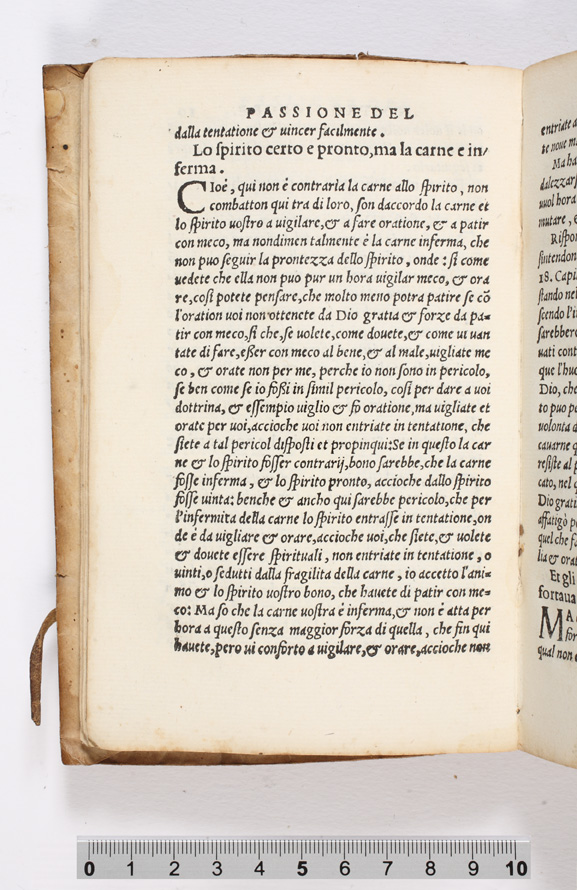 PASSIONE DEL
dalla tentatione & uincer facilmente .
Lo ſpirito certo e pronto,ma la carne e in/
ferma .
CIoé , qui non é contraria la carne allo ſpirito , non
combatton qui tra di loro, ſon daccordo la carne et
lo ſpirito uoſtro a uigilare,& a fare oratione, & a patir
con meco, ma nondimen talmente é la carne inferma, che
non puo ſeguir la prontezza dello ſpirito , onde : ſi come
uedete che ella non puo pur un hora uigilar meco, & ora
re,coſi potete penſare,che molto meno potra patire ſe cō
l'oration uoi non ottenete da Dio gratia & forze da pa=
tir con meco,ſi che,ſe uolete,come douete,& come ui uan
tate di fare,eßer con meco al bene,& al male,uigliate me
co , & orate non per me, perche io non ſono in pericolo,
ſe ben come ſe io foßi in ſimil pericolo, coſi per dare a uoi
dottrina, & eſſempio uiglio & fò oratione,ma uigliate et
orate per uoi,accioche uoi non entriate in tentatione, che
ſiete a tal pericol diſpoſti et propinqui:Se in queſto la car
ne & lo ſpirito foſſer contrarij,bono ſarebbe,che la carne
foſſe inferma , & lo ſpirito pronto, accioche dallo ſpirito
foſſe uinta: benche & ancho qui ſarebbe pericolo,che per
l'infermita della carne lo ſpirito entraſſe in tentatione,on
de é da uigliare & orare,accioche uoi,che ſiete,& uolete
& douete eſſere ſpirituali , non entriate in tentatione , o
uinti,o ſedutti dalla fragilita della carne , io accetto l'ani=
mo & lo ſpirito uoſtro bono, che hauete di patir con me=
co: Ma ſo che la carne uoſtra é inferma,& non é atta per
hora a queſto ſenza maggior forza di quella , che fin qui
hauete,pero ui conforto a uigilare,& orare,accioche non
entriate
te noue
Ma ha
dalezzarſ
uuol hora
mutare ,
Riſpo
ſintendon
18. Capi
ſtando nel
ſcendo l'i
ſarebber
uati cont
que l'hu
Dio, che
to puo p
uolonta d
cauarne q
reſiſte al p
cato, nel q
Dio grati
affatigò p
quel che f
lia & orat
Et gli
fortaua
MA
for
qual non
0 1 2 3 4 5 6 7 8 9 10